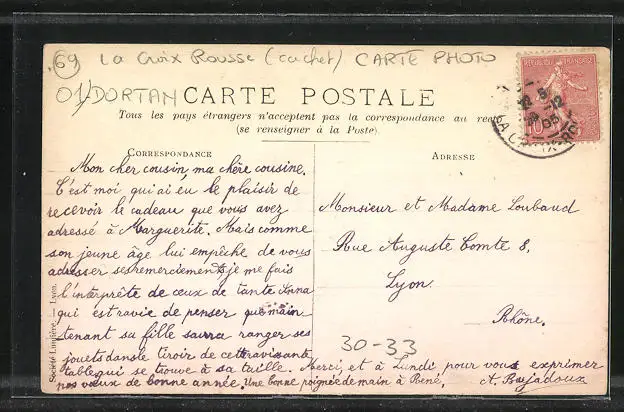 69 La Croix Rousse (cachet) CARTE PHOTO
01/DORTAN
CARTE POSTALE
Tous les pays étrangers n'acceptent pas la correspondance au recto
(se renseigner à la Poste)
RÉPUBLIQUE FRANÇAISE
10
CORRESPONDANCE
Mon cher cousin, ma chère cousine.
C'est moi qui ai eu le plaisir de
recevoir le cadeau que vous avez
adressé à Marguerite. Mais comme
son jeune âge lui empêche de vous
adresser ses remerciements, je me fais
l'interprète de ceux de tante Anna
qui est ravie de penser que main
tenant sa fille saura ranger ses
jouets dans le tiroir de cette ravissante
table qui se trouve à sa taille. Merci, et à Lundi pour vous exprimer
nos vœux de bonne année. Une bonne poignée de main à René, A. Bajadoux
ADRESSE
Monsieur et Madame Loubaud
Rue Auguste Comte 8,
Lyon.
Rhône.
30-33
Société Lumière. — Lyon.